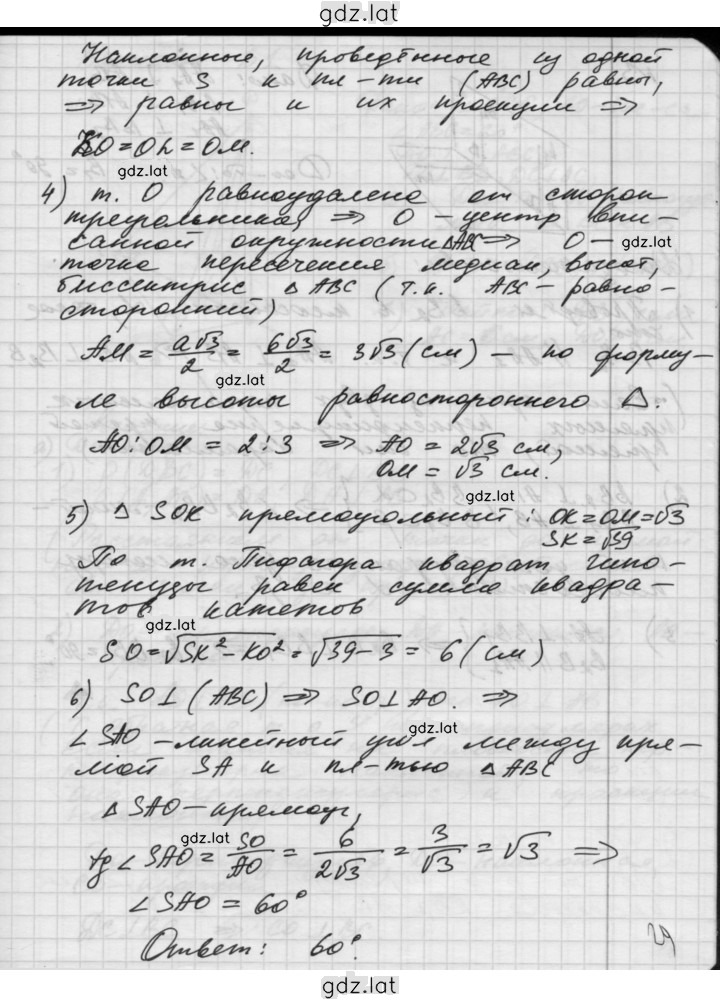 gdz.lat
Наклонные, проведённые из одной
точки S к пл-ти (ABC) равны,
=> равны и их проекции =>
KO = OL = OM.
gdz.lat
4) т. O равноудалена от сторон
треугольника, => O - центр впи-
санной окружности ΔABC => O - gdz.lat
точка пересечения медиан, высот,
биссектрис Δ ABC (т.к. ABC - равно-
сторонний)
AM = a√3/2 = 6√3/2 = 3√3 (см) - по форму-
gdz.lat
ле высоты равностороннего Δ.
AO : OM = 2 : 3 => AO = 2√3 см,
OM = √3 см.
gdz.lat
5) Δ SOK прямоугольный : OK = OM = √3
SK = √39
По т. Пифагора квадрат гипо-
тенузы равен сумме квадра-
тов катетов
gdz.lat
SO = √SK² - KO² = √39 - 3 = 6 (см)
6) SO ⊥ (ABC) => SO ⊥ AO. =>
gdz.lat
∠ SAO - линейный угол между пря-
мой SA и пл-тью Δ ABC
Δ SAO - прямоуг,
gdz.lat
tg ∠ SAO = SO/AO = 6/2√3 = 3/√3 = √3 =>
∠ SAO = 60°
Ответ: 60°.
29
gdz.lat